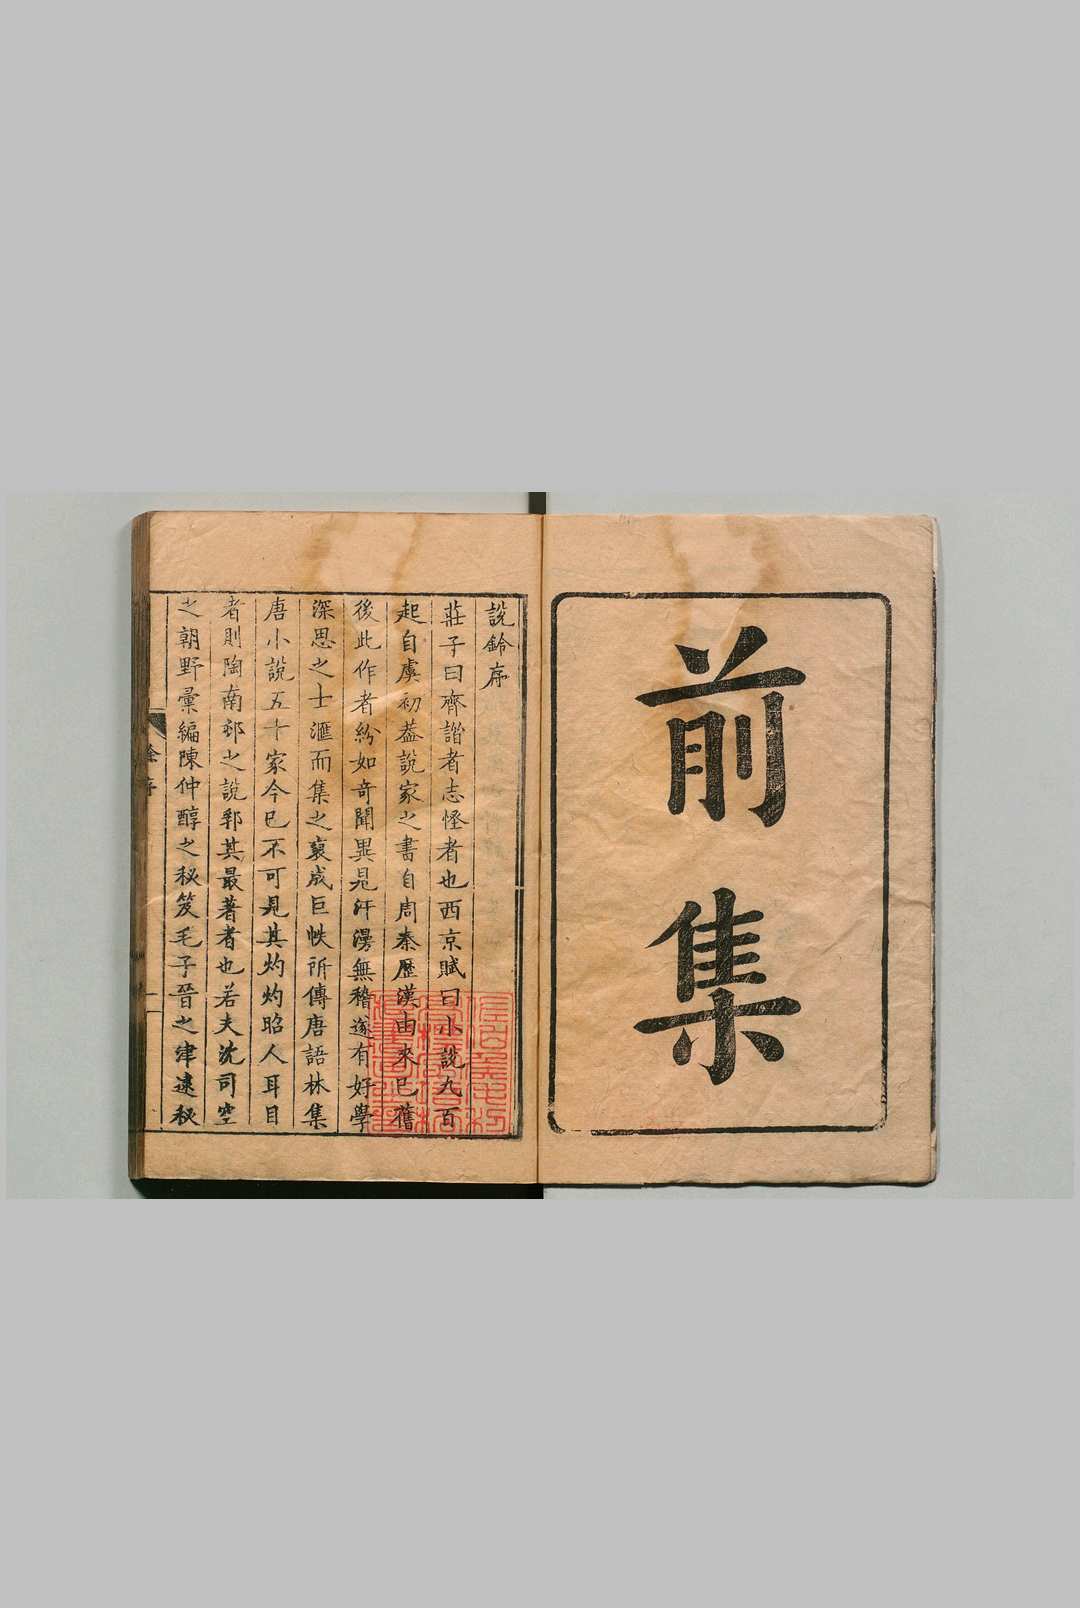 前集
說鈴序
莊子曰齊諧者志怪者也西京賦曰小說九百
起自虞初葢說家之書自周秦歷漢由來已舊
後此作者紛如奇聞異見汗漫無稽遂有好學
深思之士滙而集之裒成巨帙所傳唐語林集
唐小說五十家今已不可見其灼灼昭人耳目
者則陶南邨之說郛其最著者也若夫沈司空
之朝野彙編陳仲醇之秘笈毛子晉之津逮秘